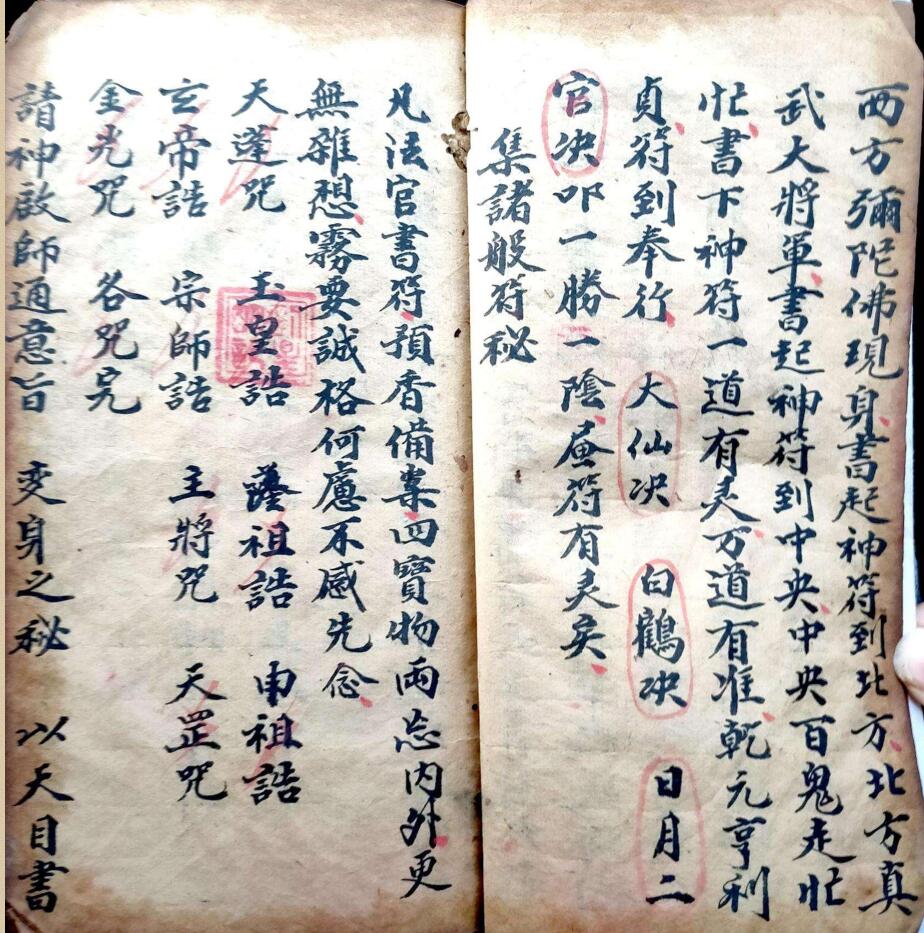 西方彌陀佛現身書起神符到北方北方真
武大將軍書起神符到中央中央百鬼走忙
忙書下神符一道有灵万道有准乾元亨利
貞符到奉行 大仙决 白鶴决 日月二
官决叩一勝一陰符有灵矣
集諸般符秘
凡法官書符預香備案四寶物兩忘内外更
無雜想霧要誠格何慮不感先念
天蓬咒 玉皇誥 薩祖誥 申祖誥
玄帝誥 宗師誥 主將咒 天罡咒
金光咒 各咒完
請神啟師通意旨 变身之秘 以天目書